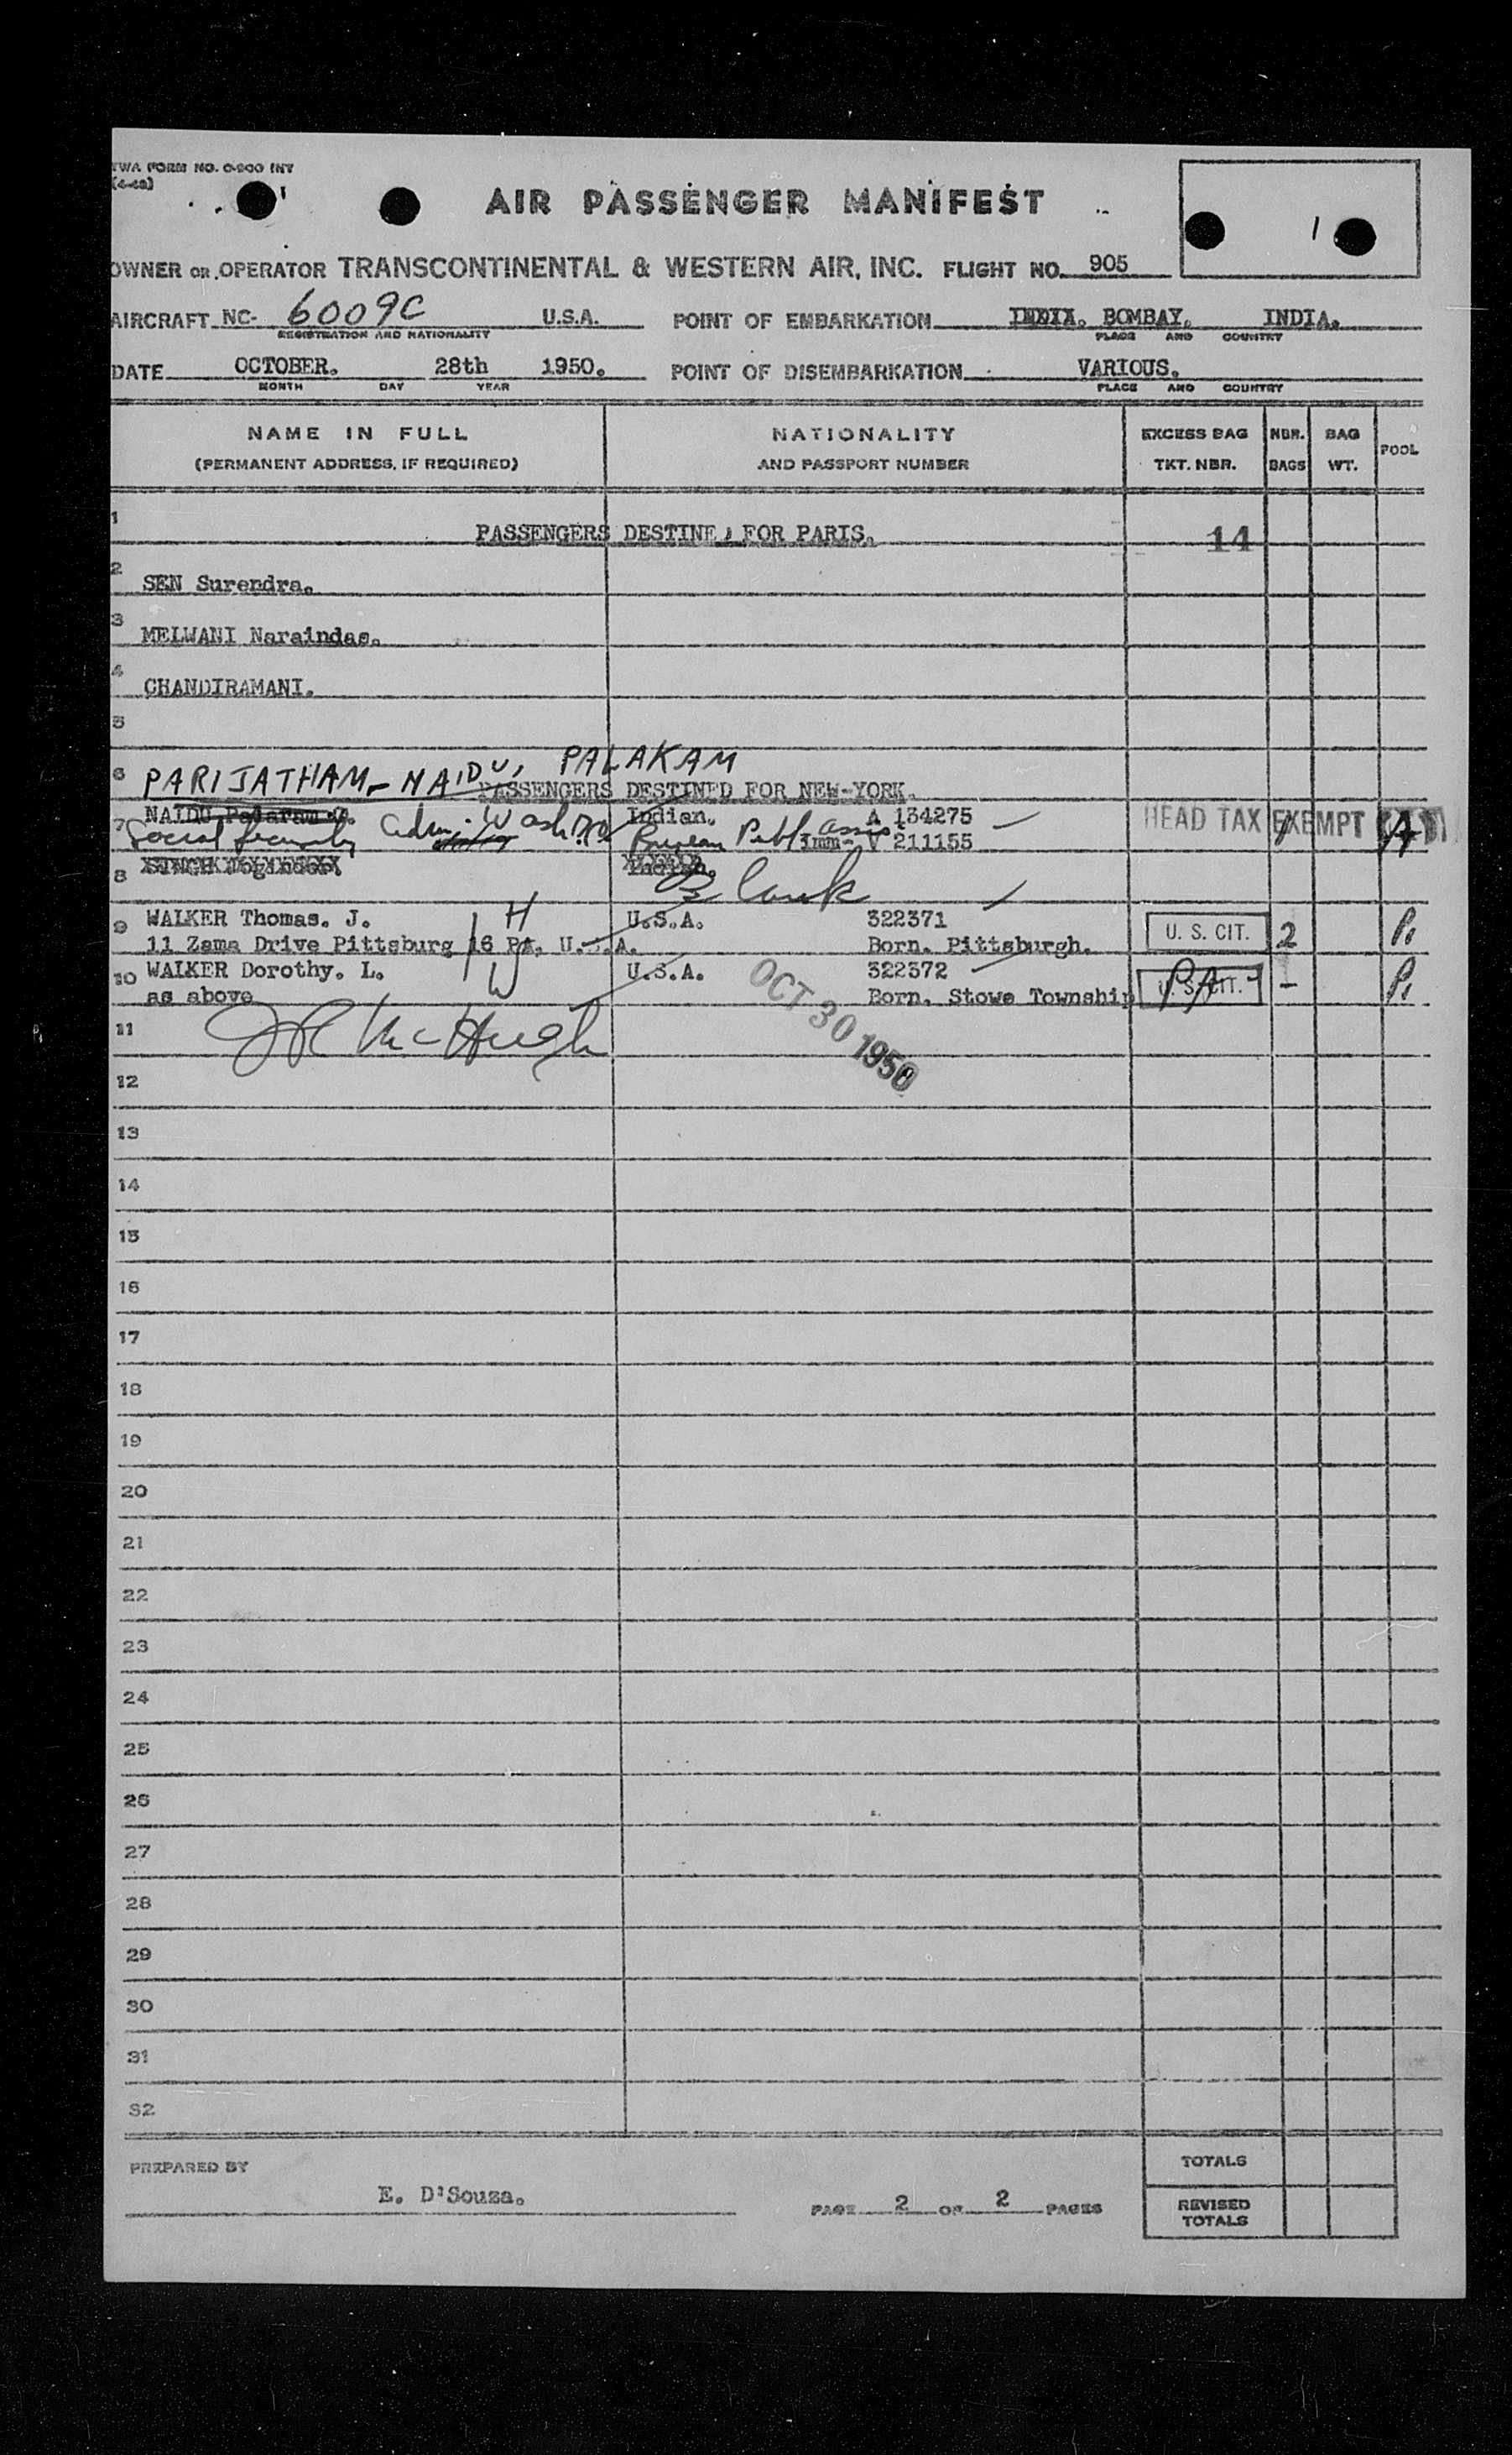 TWA FORM NO. O-900 INT
(4-48)
AIR PASSENGER MANIFEST
1
OWNER OR OPERATOR TRANSCONTINENTAL & WESTERN AIR, INC. FLIGHT NO. 905
AIRCRAFT NC- 6009C U.S.A. POINT OF EMBARKATION BOMBAY. INDIA.
REGISTRATION AND NATIONALITY PLACE AND COUNTRY
DATE OCTOBER. 28th 1950. POINT OF DISEMBARKATION VARIOUS.
MONTH DAY YEAR PLACE AND COUNTRY
NAME IN FULL NATIONALITY EXCESS BAG NBR. BAG POOL
(PERMANENT ADDRESS, IF REQUIRED) AND PASSPORT NUMBER TKT. NBR. BAGS WT.
1 PASSENGERS DESTINED FOR PARIS. 14
2 SEN Surendra.
3 MELWANI Naraindas.
4 CHANDIRAMANI.
5
6 PARIJATHAM-NAIDU, PALAKAM
PASSENGERS DESTINED FOR NEW-YORK.
7 NAIDU Indian. A 134275 HEAD TAX EXEMPT
Social Security Adm. Wash DC Bureau Publ assis Imm- V 211155
8 Blank
9 WALKER Thomas. J. H U.S.A. 322371 U. S. CIT. 2 P.
11 Zama Drive Pittsburg 16 PA. U.S.A. Born. Pittsburgh.
10 WALKER Dorothy. L. W U.S.A. 322372 U. S. CIT. PA - P.
as above Born. Stowe Township
OCT 30 1950
11 JR McHugh
12
13
14
15
16
17
18
19
20
21
22
23
24
25
26
27
28
29
30
31
32
PREPARED BY TOTALS
E. D'Souza. PAGE 2 OF 2 PAGES REVISED
TOTALS